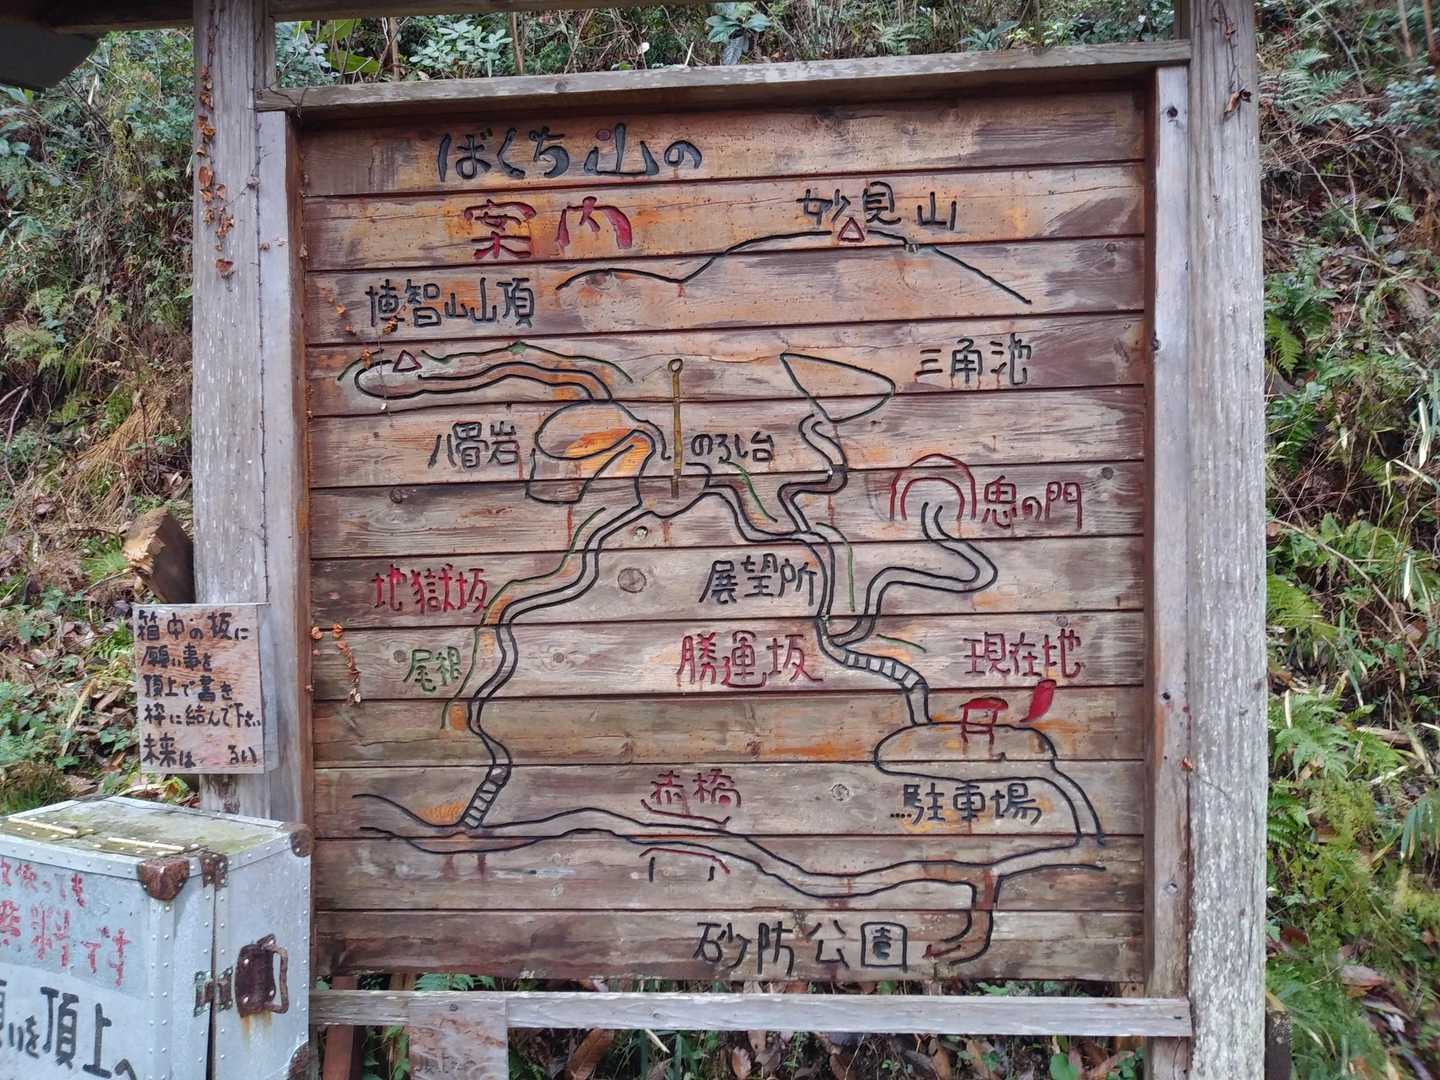 ばくち山の
案内
妙見山
博智山山頂
三角池
八畳岩
のろし台
鬼の門
地獄坂
展望所
尾根
勝運坂
現在地
赤橋
駐車場
砂防公園
箱中の板に
願い事を
頂上で書き
枠に結んで下さい
未来は
料です
いを頂上へ